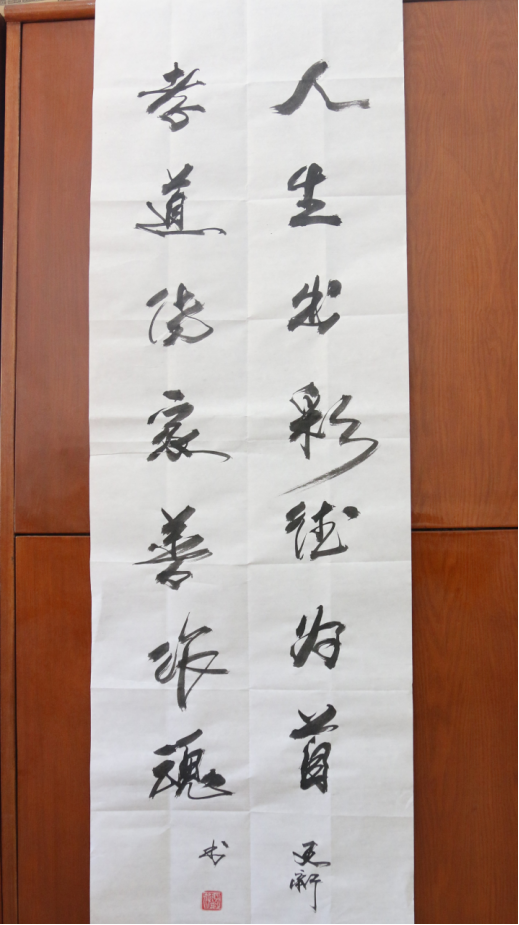 人生出彩德为首
孝道传家善作魂